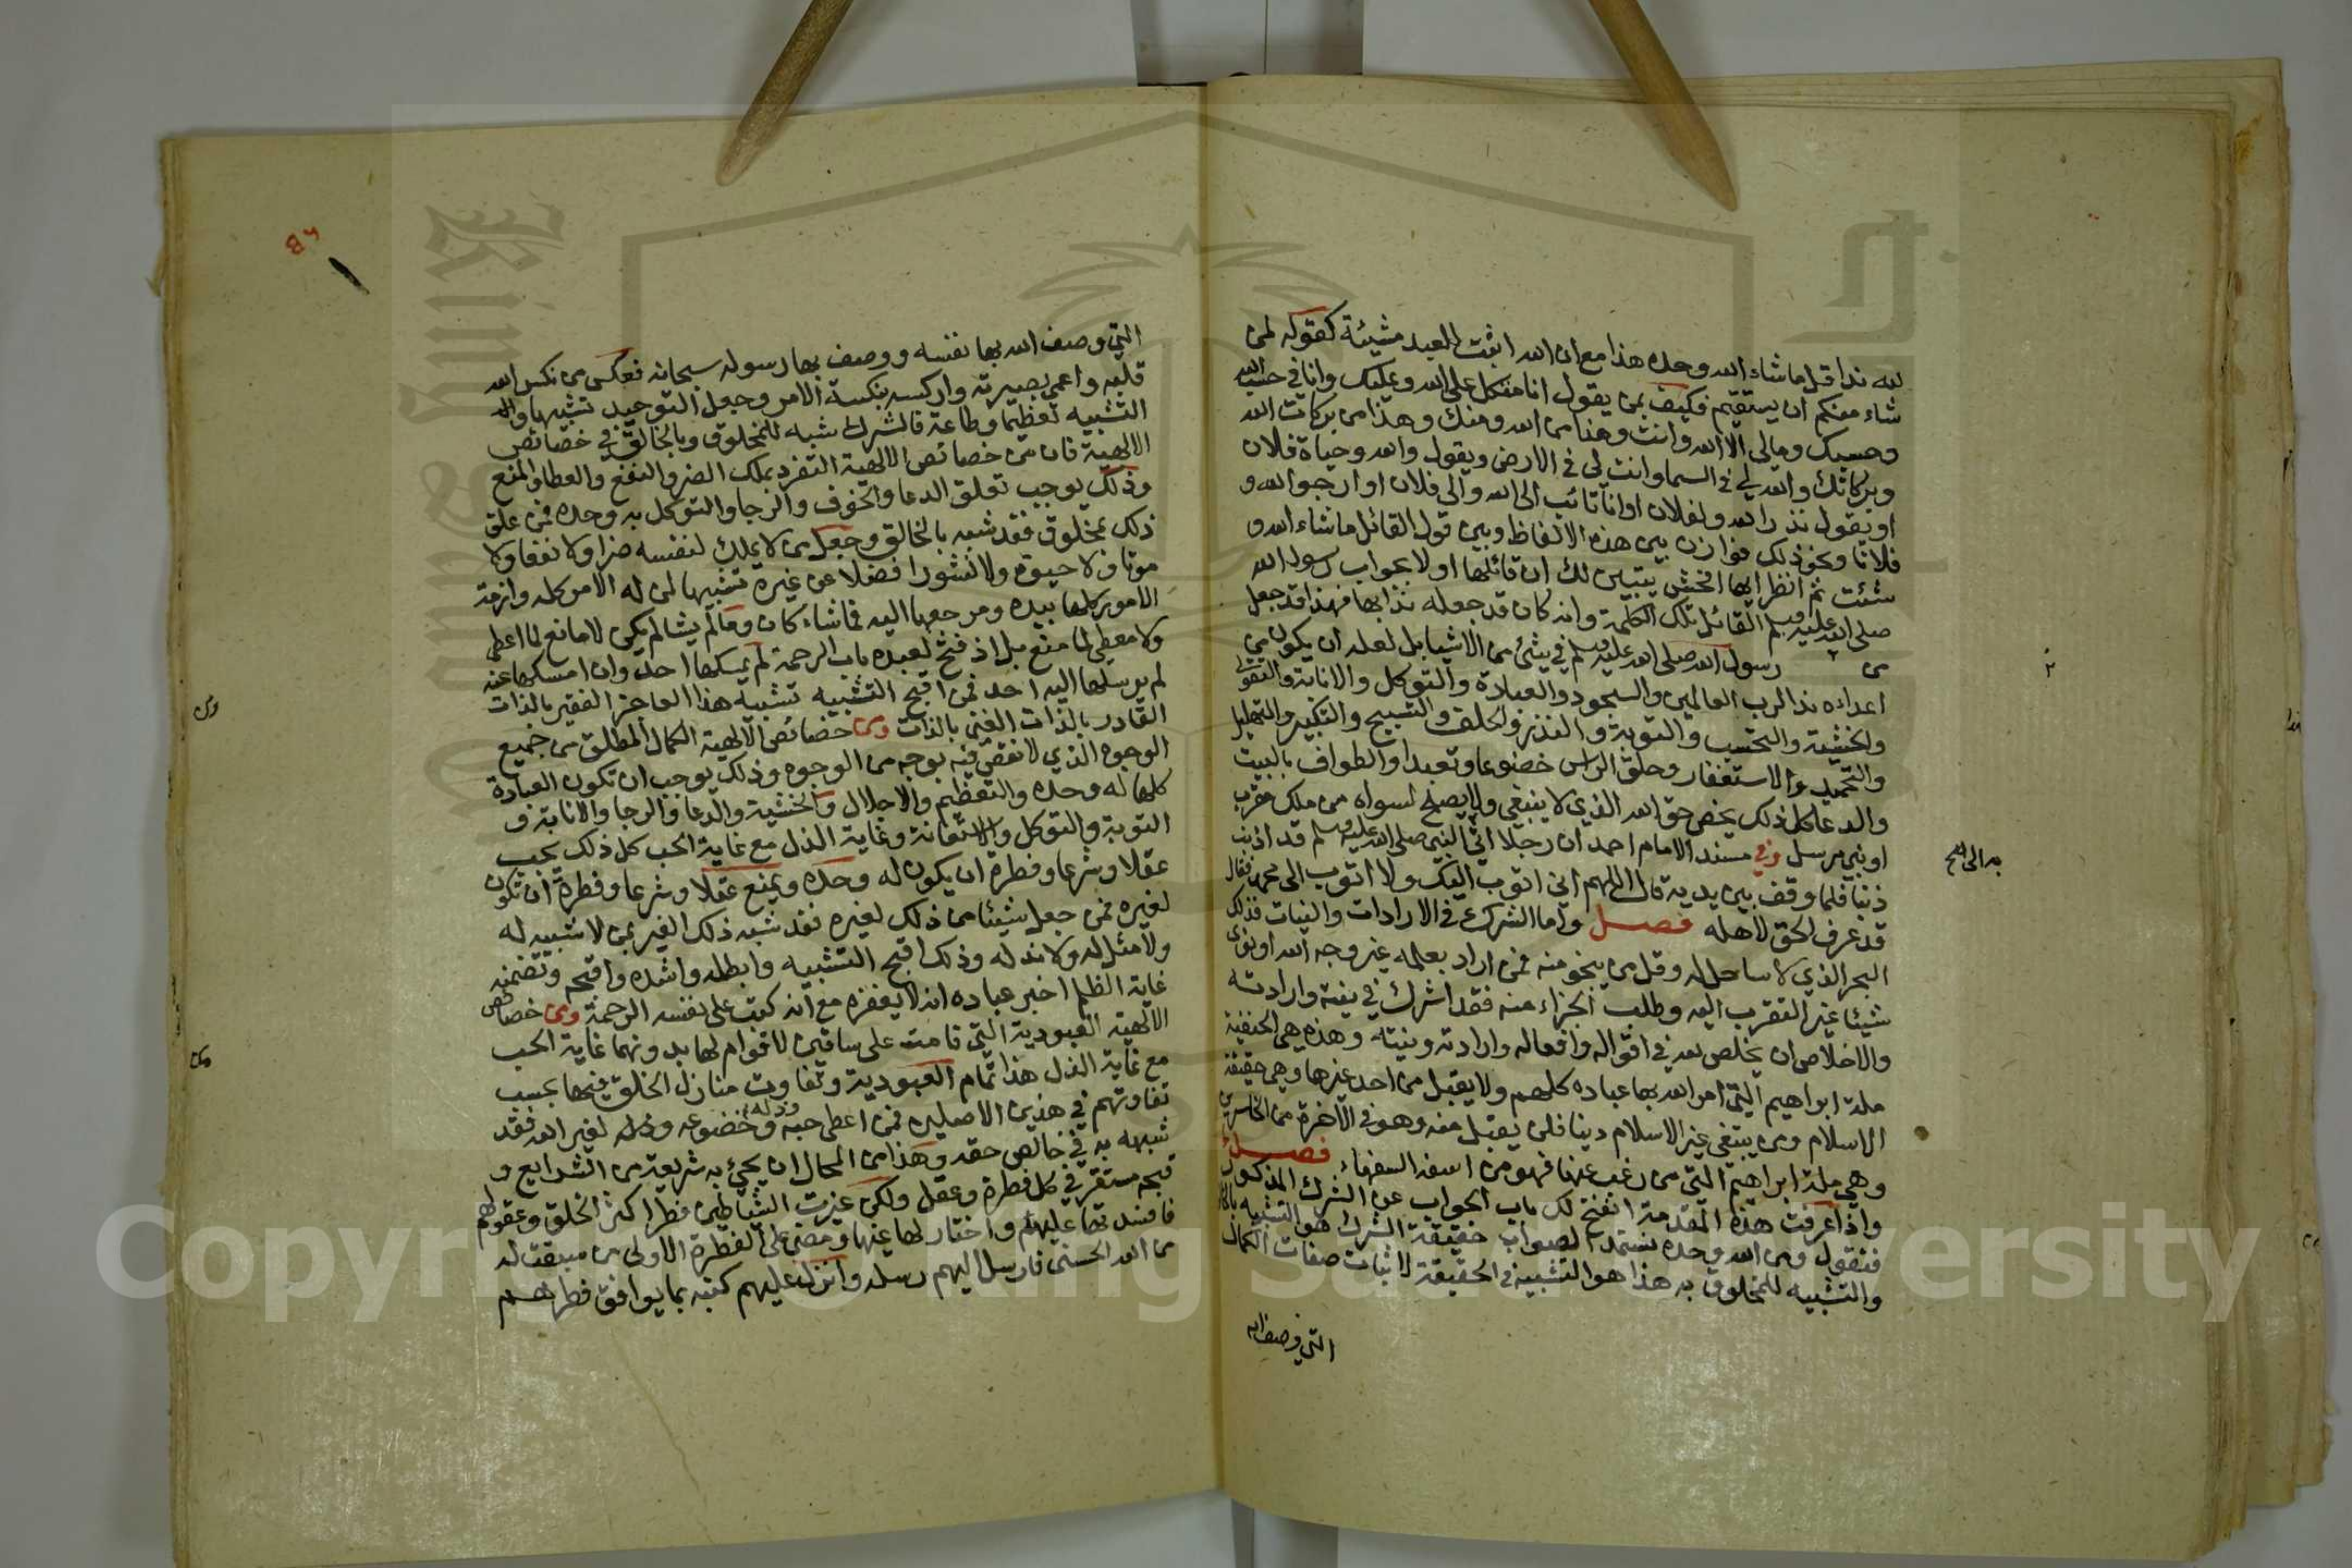 لله ندا قل ما شاء الله وحده هذا مع ان الله اثبت للعبد مشيئة كقوله لمن
شاء منكم ان يستقيم فكيف بمن يقول انا متوكل على الله وعليك وانا في حسب الله
وحسبك ومالي الا الله وانت وهذا من الله ومنك وهذا من بركات الله
وبركاتك والله لي في السما وانت لي في الارض ويقول والله وحياة فلان
او يقول نذرا لله ولفلان او انا تائب الى الله والى فلان او ارجوا الله و
فلانا ونحو ذلك فوازن بين هذه الالفاظ وبين قول القائل ما شاء الله و
شئت ثم انظر ايها افحش يتبين لك ان قائلها اولا بجواب رسول الله
صلى الله عليه وسلم القائل تلك الكلمة وانه كان قد جعله ندا بها فهذا قد جعل
من رسول الله صلى الله عليه وسلم في شئ من الاشيا بل لعله ان يكون من
اعدائه ندا لرب العالمين والسجود والعبادة والتوكل والانابة والتقوى
والخشية والتحسب والتوبة والنذر والحلف والتسبيح والتكبير والتهليل
والتحميد والاستغفار وحلق الراس خضوعا وتعبدا والطواف بالبيت
والدعا كل ذلك يخص حق الله الذي لا ينبغي ولا يصلح لسواه من ملك مقرب
او نبي مرسل وفي مسند الامام احمد ان رجلا اتي النبي صلى الله عليه وسلم قد اذنب
به الى النبي
ذنبا فلما وقف بين يديه قال اللهم اني اتوب اليك ولا اتوب الى محمد فقال
قد عرف الحق لاهله فصل واما الشرك في الارادات والنيات فذلك
البحر الذي لا ساحل له وقل من ينجو منه فمن اراد بعلمه غير وجه الله او نوى
شيئا غير التقرب اليه وطلب الجزاء منه فقد اشرك في نيته وارادته
والاخلاص ان يخلص لله في اقواله وافعاله وارادته ونيته وهذه هي الحنفية
ملة ابراهيم التي امر الله بها عباده كلهم ولا يقبل من احد غيرها وهي حقيقة
الاسلام ومن يبتغي غير الاسلام دينا فلن يقبل منه وهو في الآخرة من الخاسرين
وهي ملة ابراهيم التي من رغب عنها فهو من اسفه السفهاء فصل
واذا عرفت هذه المقدمة انفتح لك باب الجواب عن الشرك المذكور
فنقول ومن الله وحده نستمد الصواب حقيقة الشرك هو التشبيه بالخالق
والتشبيه للمخلوق به هذا هو التشبيه في الحقيقة لا اثبات صفات الكمال
التي وصف الله
التي وصف الله بها نفسه ووصف بها رسوله سبحانه فعكس من نكس الله
قلبه واعمى بصيرته واركسه بنكسة الامر وجعل التوحيد تشبيها وال
التشبيه تعظيما وطاعة فالشرك شبه للمخلوق وبالخالق في خصائص
الالهية فان من خصائص الالهية التفرد بملك الضر والنفع والعطا والمنع
وذلك يوجب تعلق الدعا والخوف والرجا والتوكل به وحده فمن علق
ذلك بمخلوق فقد شبه بالخالق وجعل من لا يملك لنفسه ضرا ولا نفعا ولا
موتا ولا حيوة ولا نشورا فضلا عن غيره تشبيها لمن له الامر كله وازمة
الامور كلها بيده ومرجعها اليه فما شاء كان وما لم يشا لم يكن لا مانع لما اعطى
ولا معطي لما منع بل اذ فتح لعبده باب الرحمة لم يمسكها احد وان امسكها عنه
لم يرسلها اليه احد فمن اقبح التشبيه تشبيه هذا العاجز الفقير بالذات
القادر بالذات الغني بالذات ومن خصائص الالهية الكمال المطلق من جميع
ومن
الوجوه الذي لا نقص فيه بوجه من الوجوه وذلك يوجب ان تكون العبادة
كلها له وحده والتعظيم والاجلال والخشية والدعا والرجا والانابة و
التوبة والتوكل والاستعانة وغاية الذل مع غاية الحب كل ذلك يجب
عقلا وشرعا وفطرة ان يكون له وحده ويمنع عقلا وشرعا وفطرة ان تكون
لغيره فمن جعل شيئا من ذلك لغيره فقد شبه ذلك الغير بمن لا شبيه له
ولا مثل له ولا ند له وذلك اقبح التشبيه وابطله واشده واقبحه وتضمنه
غاية الظلم اخبر عباده انه لا يغفره مع انه كتب على نفسه الرحمة ومن خصائص
الالهية العبودية التي قامت على ساقين لا قوام لها بدونهما غاية الحب
ومن
مع غاية الذل هذا تمام العبودية وتفاوت منازل الخلق فيهما بحسب
تفاوتهم في هذين الاصلين فمن اعطى حبه وذله وخضوعه وذله لغير الله فقد
شبهه به في خالص حقه وهذا من المحال ان يجئ به شريعة من الشرايع و
قبحه مستقر في كل فطرة وعقل ولكن غيرت الشياطين فطرا كثر الخلق وعقولهم
فافسدتها عليهم واختار لها عنها ومضى على الفطرة الاولى من سبقت له
من الله الحسنى فارسل اليهم رسله وانزل عليهم كتبه بما يوافق فطرهم
Copyright © King Saud University